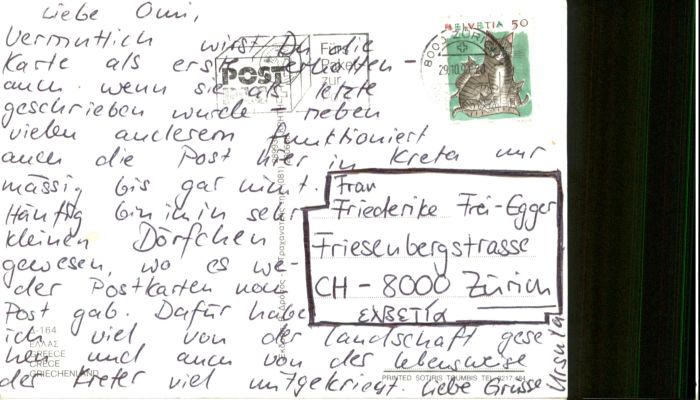 Liebe Omi,
Vermutlich wirst Du die
Karte als erste erhalten -
auch wenn sie als letzte
geschrieben wurde - neben
vielen anderem funktioniert
auch die Post hier in Kreta nur
mässig bis gar nicht.
Häufig bin ich in sehr
kleinen Dörfchen
gewesen, wo es we-
der Postkarten noch
Post gab. Dafür habe
ich viel von der Landschaft gese-
hen und auch von der Lebensweise
der Kreter viel mitgekriegt. Liebe Grüsse
Ursula
Frau
Friederike Frei-Egger
Friesenbergstrasse
CH - 8000 Zürich
ΕΛΒΕΤΙΑ
HELVETIA 50
8000 ZÜRICH
POST
Für
Pakete
zur
A-164
ΕΛΛΑΣ
GREECE
GRECE
GRIECHENLAND
PRINTED SOTIRIS TOUMBIS TEL.